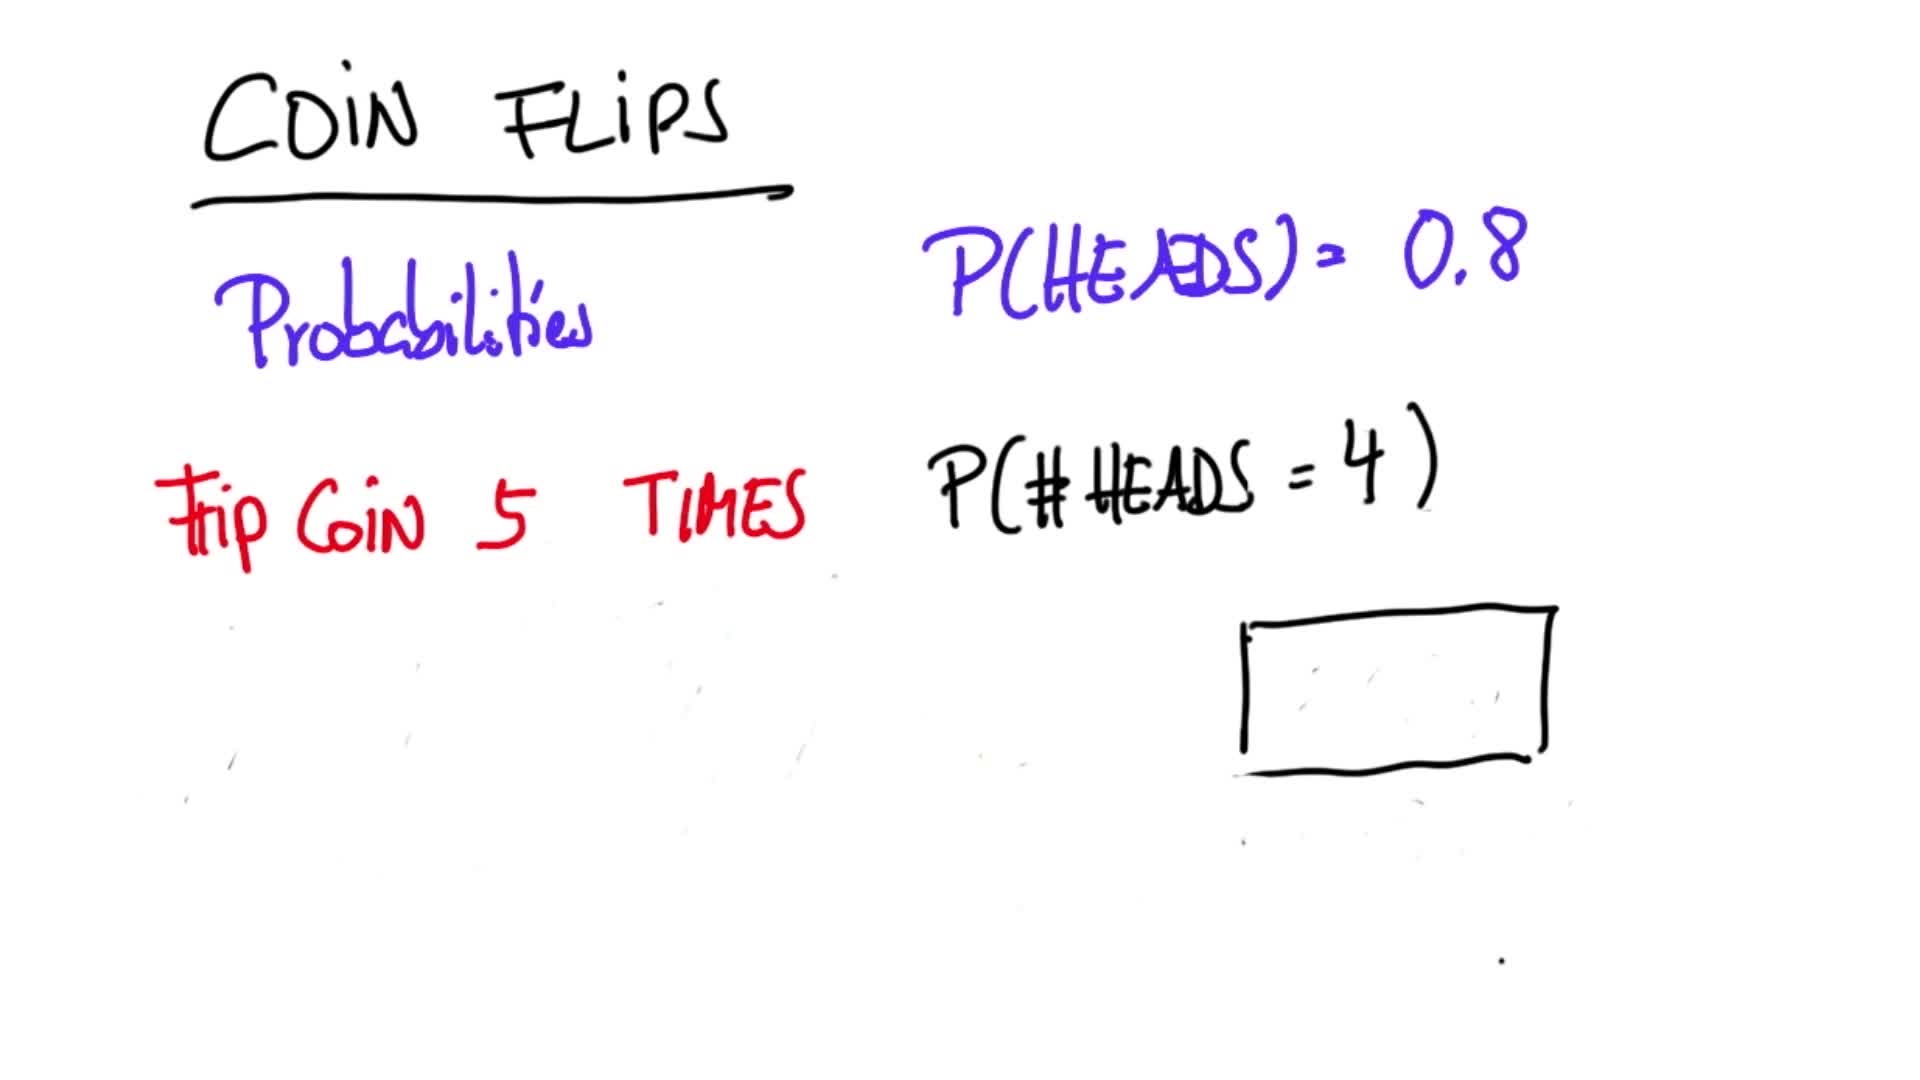 COIN FLIPS
Probabilities
P(HEADS) = 0.8
Flip Coin 5 TIMES
P(# HEADS = 4)